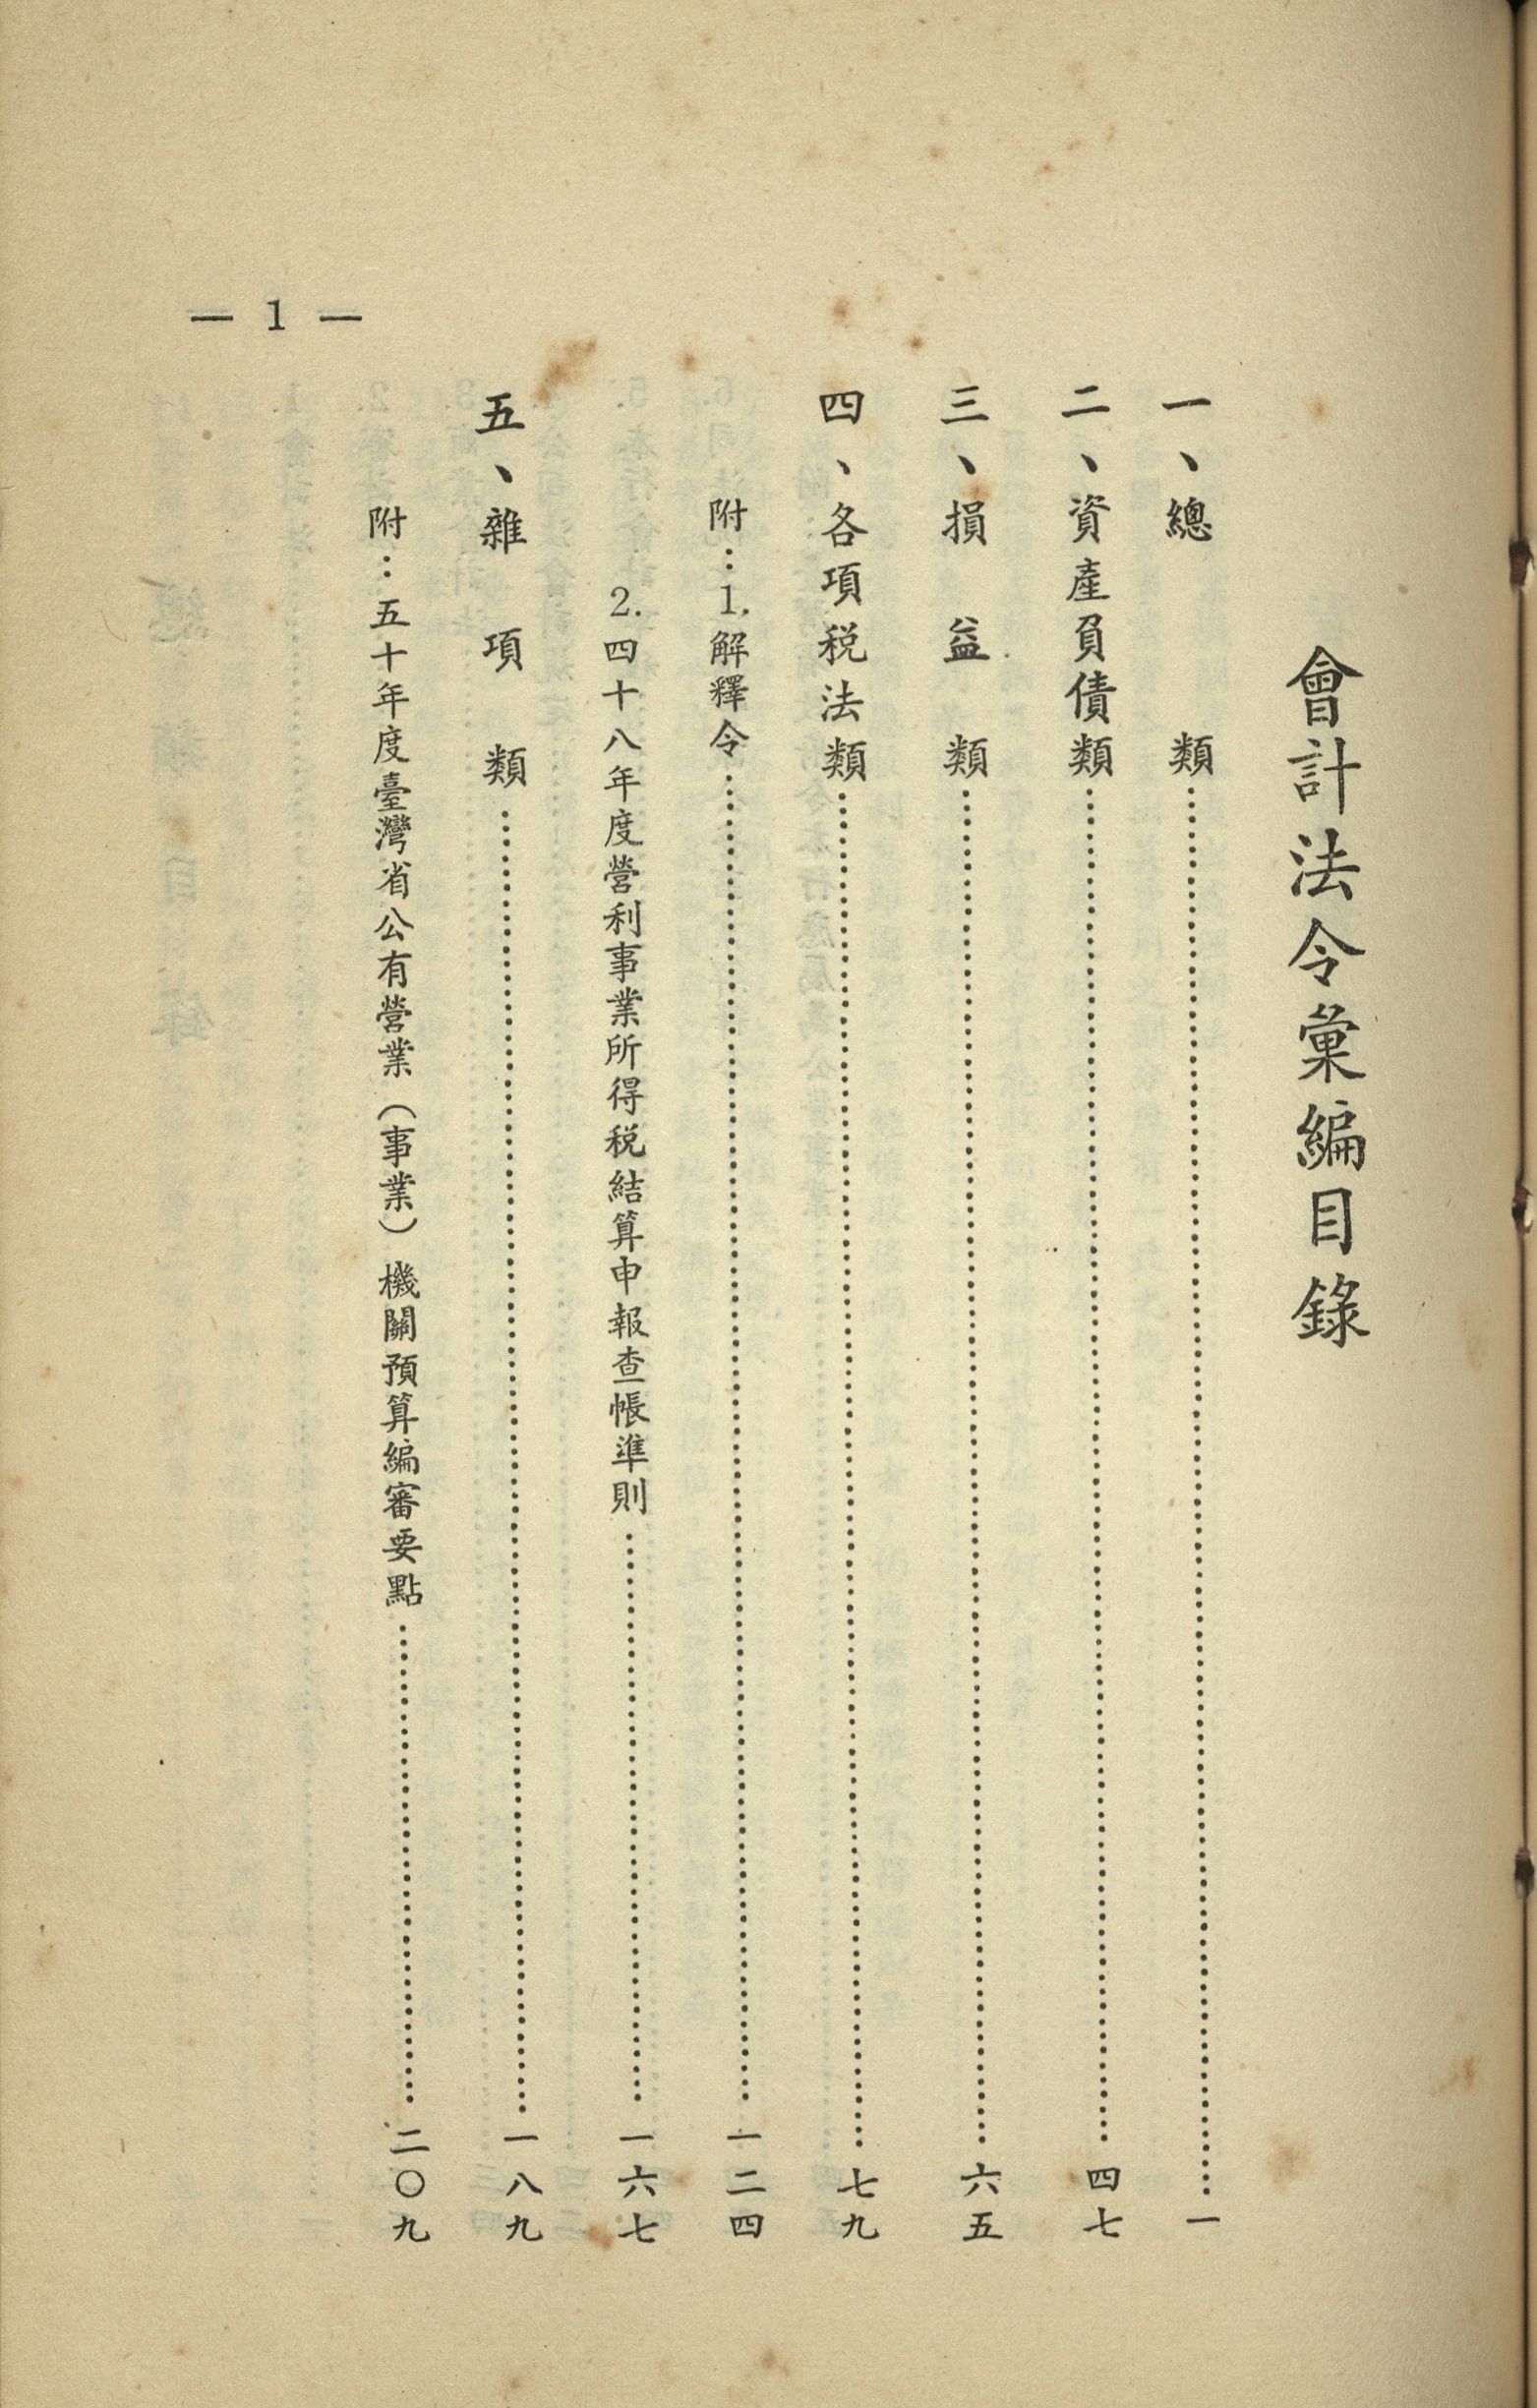 會計法令彙編目錄
一、總類……一
二、資產負債類……四七
三、損益類……六五
四、各項稅法類……七九
附：1.解釋令……一二四
2.四十八年度營利事業所得稅結算申報查帳準則……一六七
五、雜項類……一八九
附：五十年度臺灣省公有營業（事業）機關預算編審要點……二〇九
— 1 —